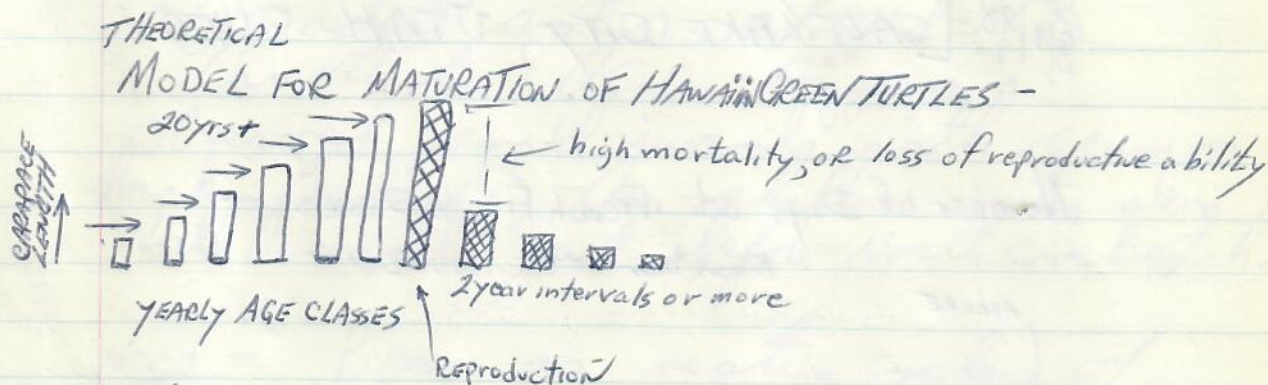 THEORETICAL
MODEL FOR MATURATION OF HAWAiiAN GREEN TURTLES -
20yrs+
high mortality, OR loss of reproductive ability
CARAPACE
LENGTH
2 year intervals or more
YEARLY AGE CLASSES
REproduction